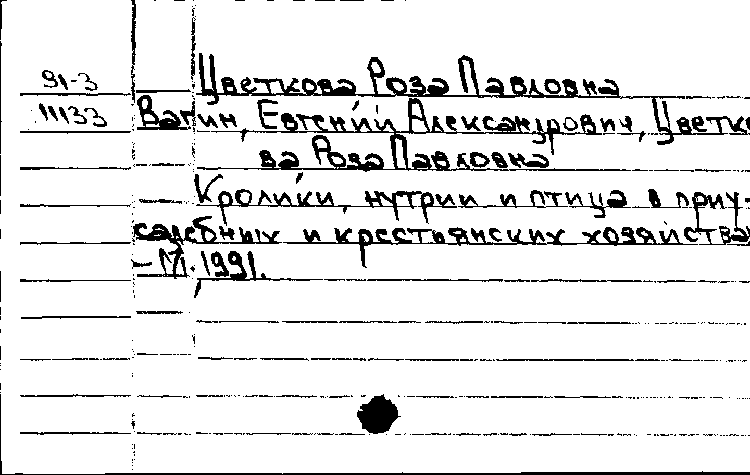 91-3 Цветкова Роза Павловна
11133 Вагин, Евгений Александрович, Цветко
ва Роза Павловна
Кролики, нутрии и птица в приу-
садебных и крестьянских хозяйствах
- М. 1991.